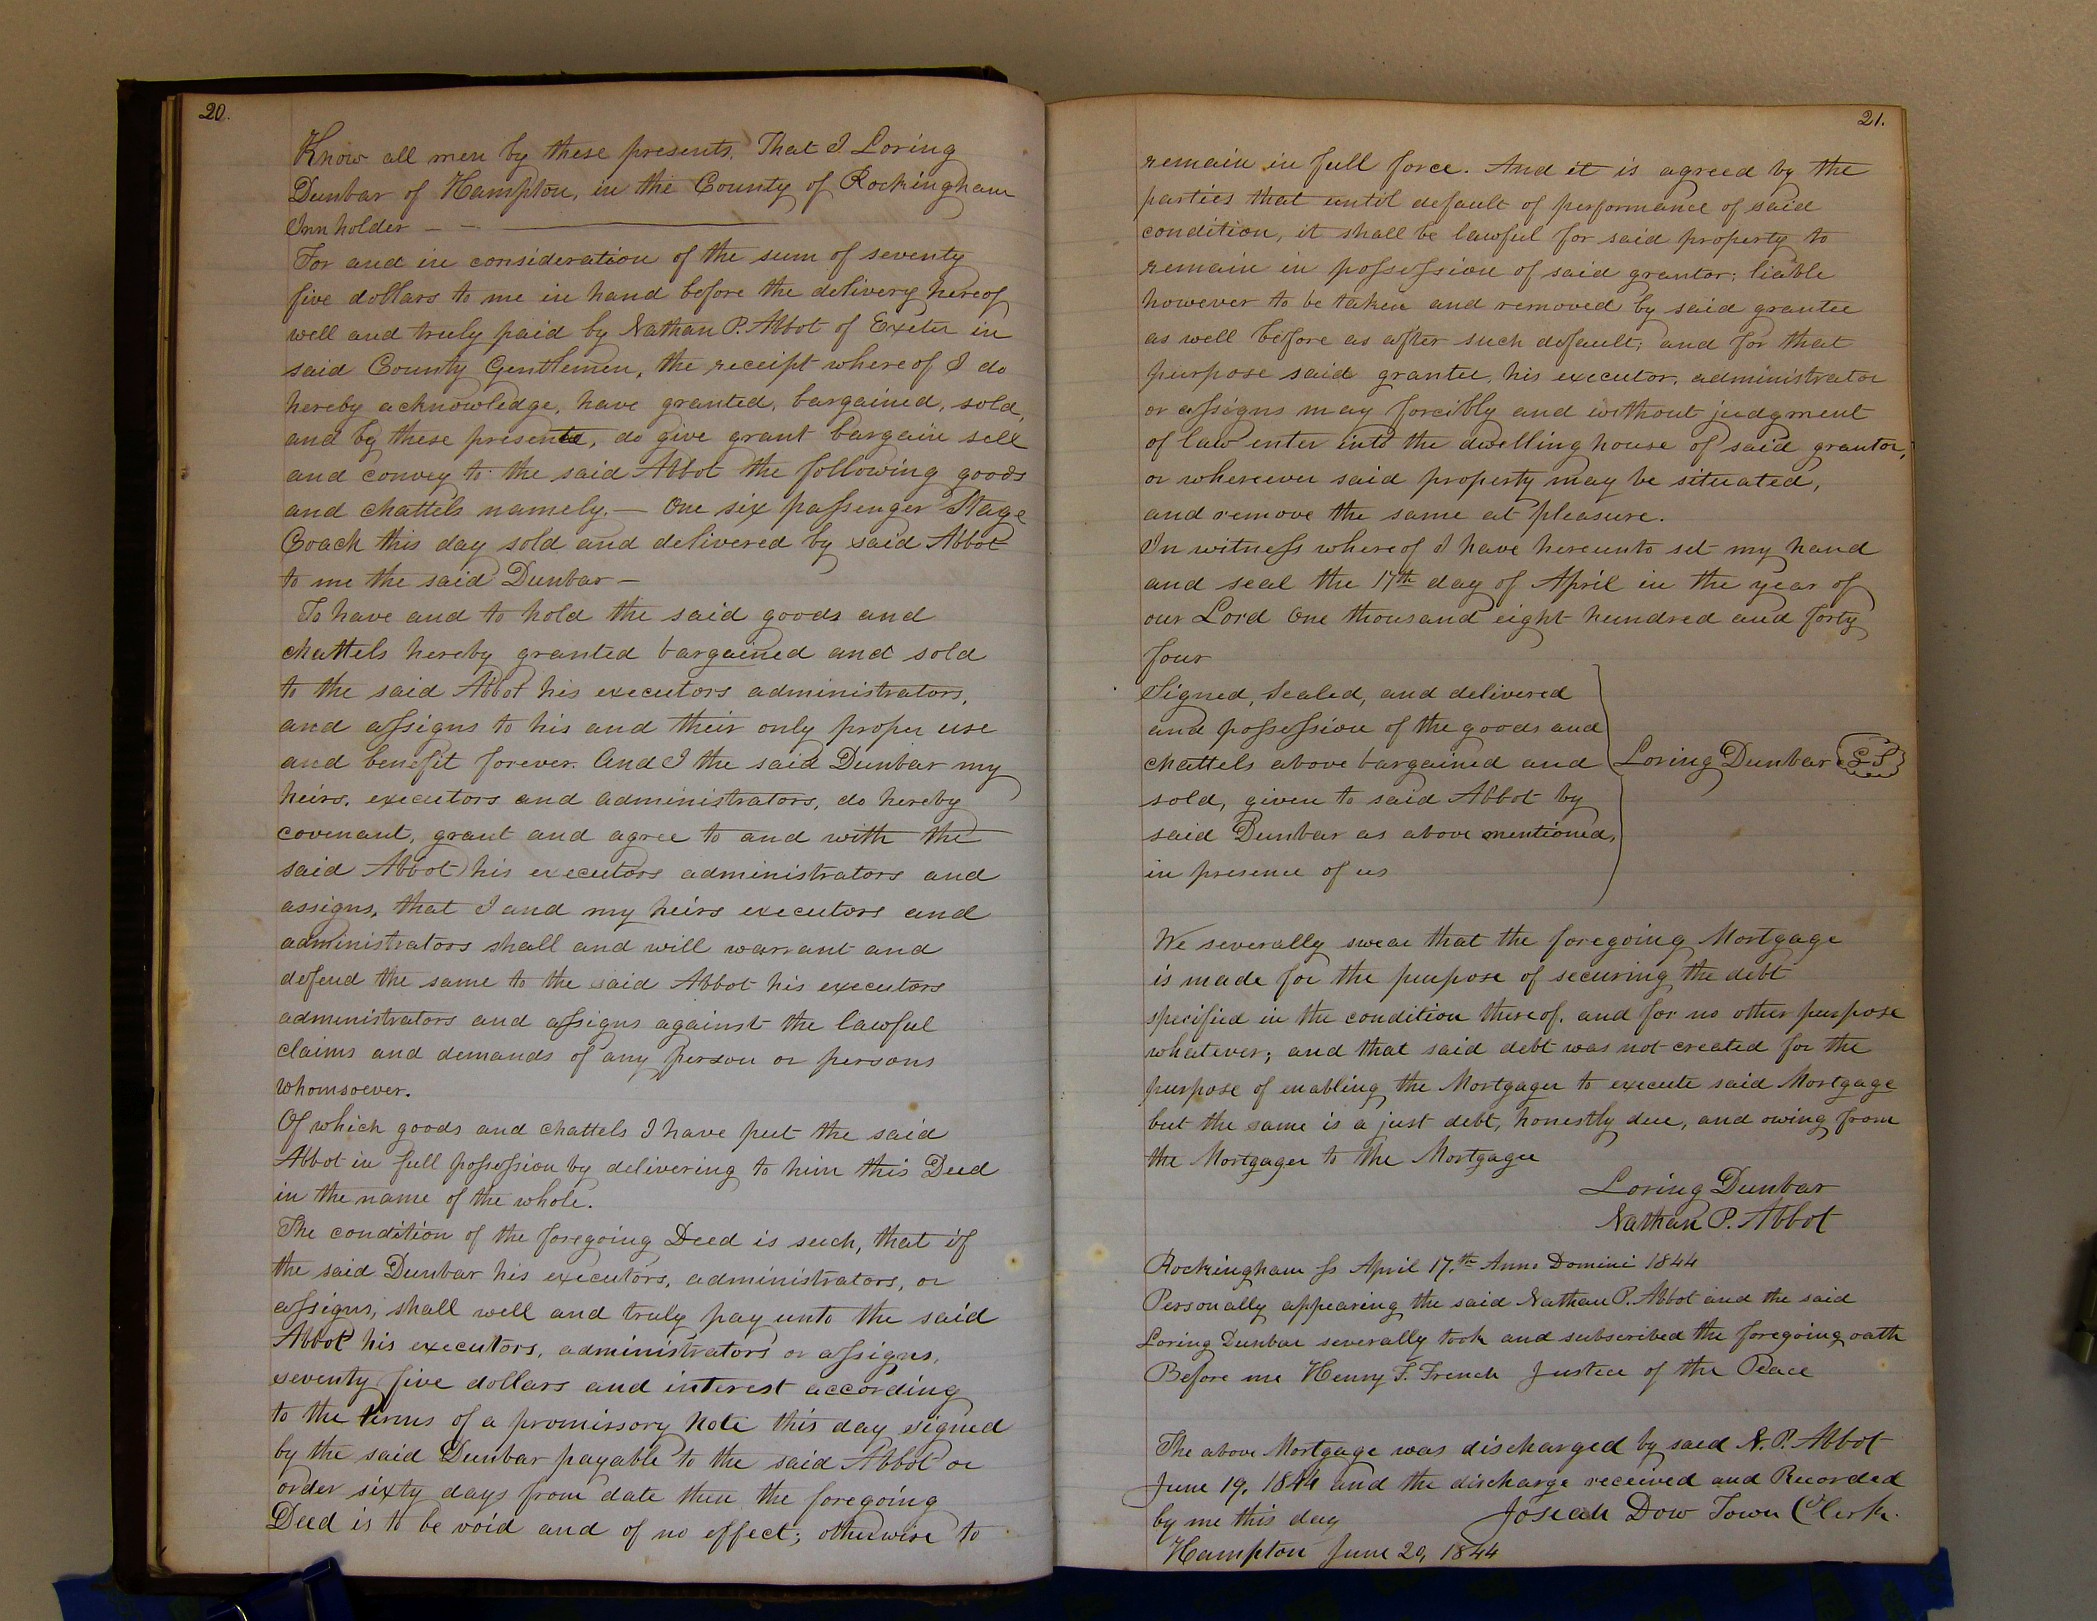 20.
Know all men by these presents. That I Loring
Dunbar of Hampton, in the County of Rockingham
Innholder — —
For and in consideration of the sum of seventy
five dollars to me in hand before the delivery hereof
well and truly paid by Nathan P. Abbot of Exeter in
said County Gentlemen, the receipt whereof I do
hereby acknowledge, have granted, bargained, sold,
and by these presents, do give grant bargain sell
and convey to the said Abbot the following goods
and chattels namely. — One six passenger Stage
Coach this day sold and delivered by said Abbot
to me the said Dunbar —
To have and to hold the said goods and
chattels hereby granted bargained and sold
to the said Abbot his executors administrators,
and assigns to his and their only proper use
and benefit forever. And I the said Dunbar my
heirs, executors and administrators, do hereby
covenant, grant and agree to and with the
said Abbot his executors administrators and
assigns, that I and my heirs executors and
administrators shall and will warrant and
defend the same to the said Abbot his executors
administrators and assigns against the lawful
claims and demands of any person or persons
whomsoever.
Of which goods and chattels I have put the said
Abbot in full possession by delivering to him this Deed
in the name of the whole.
The condition of the foregoing Deed is such, that if
the said Dunbar his executors, administrators, or
assigns, shall well and truly pay unto the said
Abbot his executors, administrators or assigns,
seventy five dollars and interest according
to the terms of a promissory Note this day signed
by the said Dunbar payable to the said Abbot or
order sixty days from date then the foregoing
Deed is to be void and of no effect; otherwise to
21.
remain in full force. And it is agreed by the
parties that until default of performance of said
condition, it shall be lawful for said property to
remain in possession of said grantor; liable
however to be taken and removed by said grantee
as well before as after such default; and for that
purpose said grantee, his executor, administrator
or assigns may forcibly and without judgment
of law enter into the dwelling house of said grantor,
or wherever said property may be situated,
and remove the same at pleasure.
In witness whereof I have hereunto set my hand
and seal the 17th day of April in the year of
our Lord One thousand eight hundred and forty
four
Signed, Sealed, and delivered
and possession of the goods and
chattels above bargained and
Loring Dunbar LS
sold, given to said Abbot by
said Dunbar as above mentioned,
in presence of us
We severally swear that the foregoing Mortgage
is made for the purpose of securing the debt
specified in the condition thereof, and for no other purpose
whatever; and that said debt was not created for the
purpose of enabling the Mortgager to execute said Mortgage
but the same is a just debt, honestly due, and owing from
the Mortgager to the Mortgagee
Loring Dunbar
Nathan P. Abbot
Rockingham ss April 17.th Anno Domini 1844
Personally appearing the said Nathan P. Abbot and the said
Loring Dunbar severally took and subscribed the foregoing oath
Before me Henry F. French Justice of the Peace
The above Mortgage was discharged by said N. P. Abbot
June 19, 1844 and the discharge received and Recorded
by me this day Josiah Dow Town Clerk.
Hampton June 20, 1844